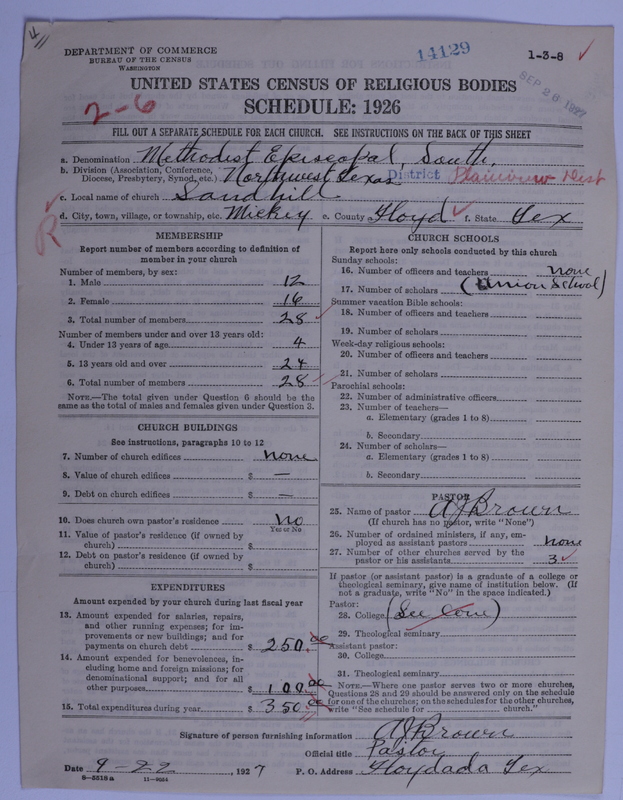 4
DEPARTMENT OF COMMERCE
BUREAU OF THE CENSUS
WASHINGTON
14129
1-3-8 ✓
SEP 26 1927
UNITED STATES CENSUS OF RELIGIOUS BODIES
2-6
SCHEDULE: 1926
FILL OUT A SEPARATE SCHEDULE FOR EACH CHURCH. SEE INSTRUCTIONS ON THE BACK OF THIS SHEET
a. Denomination Methodist Episcopal, South.
b. Division (Association, Conference, Diocese, Presbytery, Synod, etc.) Northwest Texas District Plainview Dist
c. Local name of church Sandhill
d. City, town, village, or township, etc. Mickey e. County Floyd ✓ f. State Tex
R
MEMBERSHIP
Report number of members according to definition of
member in your church
Number of members, by sex:
1. Male 12
2. Female 16
3. Total number of members 28
Number of members under and over 13 years old:
4. Under 13 years of age 4
5. 13 years old and over 24
6. Total number of members 28
NOTE.—The total given under Question 6 should be the
same as the total of males and females given under Question 3.
CHURCH BUILDINGS
See instructions, paragraphs 10 to 12
7. Number of church edifices none
8. Value of church edifices $ —
9. Debt on church edifices $ —
10. Does church own pastor's residence No
Yes or No
11. Value of pastor's residence (if owned by
church) $
12. Debt on pastor's residence (if owned by
church) $
EXPENDITURES
Amount expended by your church during last fiscal year
13. Amount expended for salaries, repairs,
and other running expenses; for im-
provements or new buildings; and for
payments on church debt $ 250.00
14. Amount expended for benevolences, in-
cluding home and foreign missions; for
denominational support; and for all
other purposes $ 100.00
15. Total expenditures during year $ 350.00
CHURCH SCHOOLS
Report here only schools conducted by this church
Sunday schools:
16. Number of officers and teachers none
17. Number of scholars (Union School)
Summer vacation Bible schools:
18. Number of officers and teachers
19. Number of scholars
Week-day religious schools:
20. Number of officers and teachers
21. Number of scholars
Parochial schools:
22. Number of administrative officers
23. Number of teachers—
a. Elementary (grades 1 to 8)
b. Secondary
24. Number of scholars—
a. Elementary (grades 1 to 8)
b. Secondary
PASTOR
25. Name of pastor AJ Brown
(If church has no pastor, write "None")
26. Number of ordained ministers, if any, em-
ployed as assistant pastors none
27. Number of other churches served by the
pastor or his assistants 3 ✓
If pastor (or assistant pastor) is a graduate of a college or
theological seminary, give name of institution below. (If
not a graduate, write "No" in the space indicated.)
Pastor:
28. College (See Cone)
29. Theological seminary
Assistant pastor:
30. College
31. Theological seminary
NOTE.—Where one pastor serves two or more churches,
Questions 28 and 29 should be answered only on the schedule
for one of the churches; on the schedules for the other churches,
write "See schedule for church."
Signature of person furnishing information AJ Brown
Official title Pastor
Date 9-22, 1927 P. O. Address Floydada Tex
8-5518a 11-9054